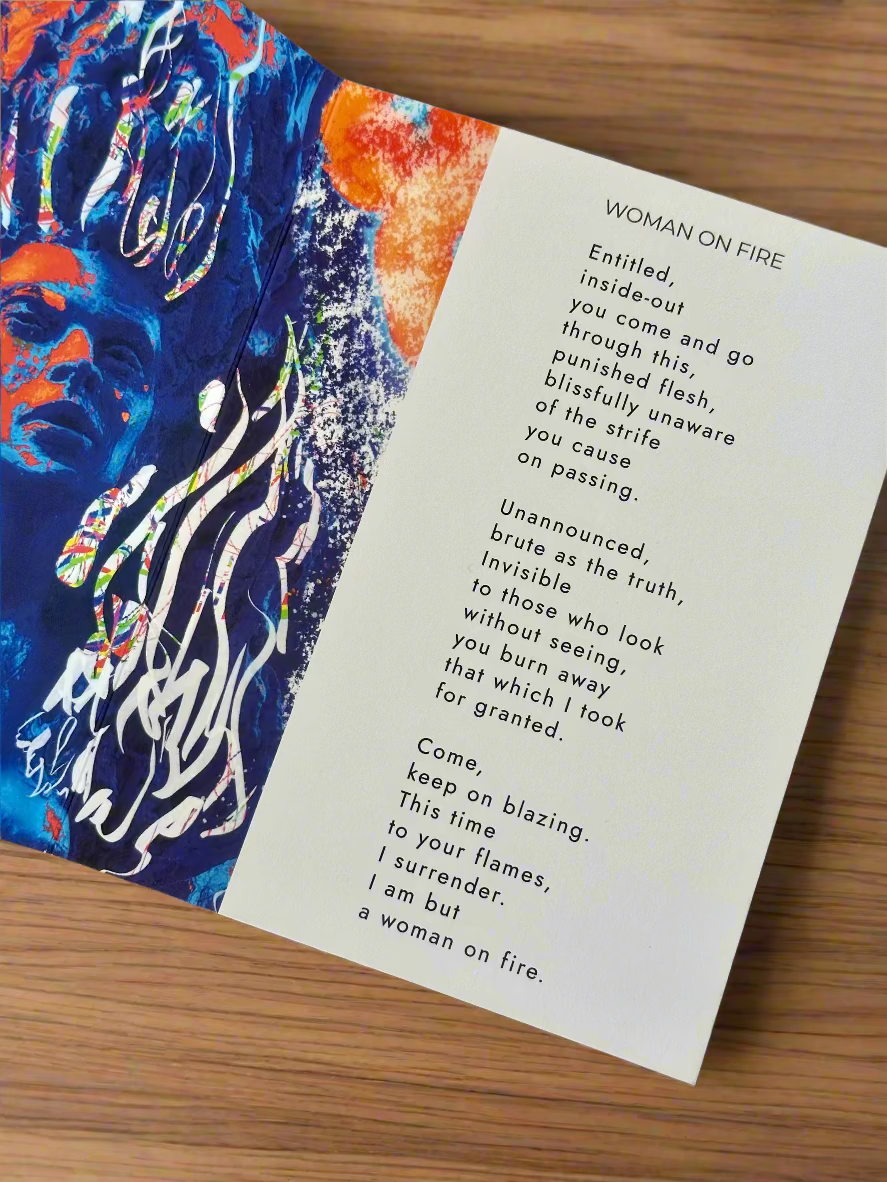 WOMAN ON FIRE
Entitled,
inside-out
you come and go
through this,
punished flesh,
blissfully unaware
of the strife
you cause
on passing.
Unannounced,
brute as the truth,
Invisible
to those who look
without seeing,
you burn away
that which I took
for granted.
Come,
keep on blazing.
This time
to your flames,
I surrender.
I am but
a woman on fire.